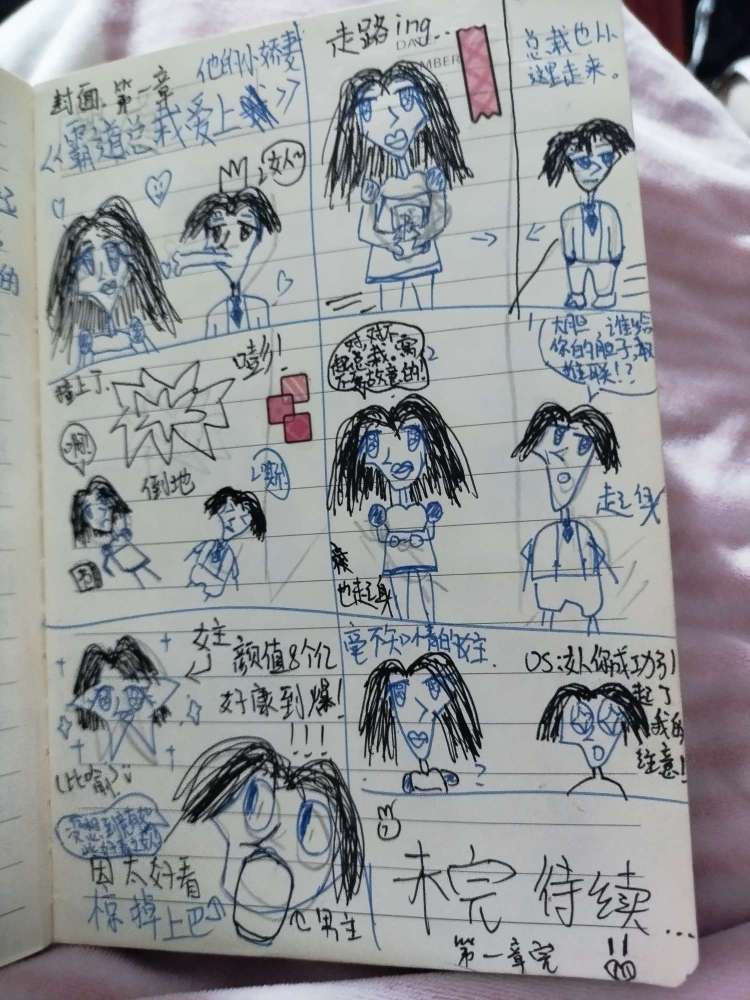 封面.第一章
他的小娇妻
《霸道总裁爱上》
女人~
走路ing...
DA
MBER
总裁也从
这里走来。
撞上了.
嘭!
啊!
倒地
嘶!
对,对不
起总裁。窝
不是故意的!
大胆,谁给
你的胆子敢
撞朕!?
起身
也起身
女主
颜值8个亿
好康到爆!
!!!
比喻
因太好看
惊掉上巴
男主
毫不知情的女主.
?
OS:女人你成功引
起了
我的
注意!
未完待续...
第一章完